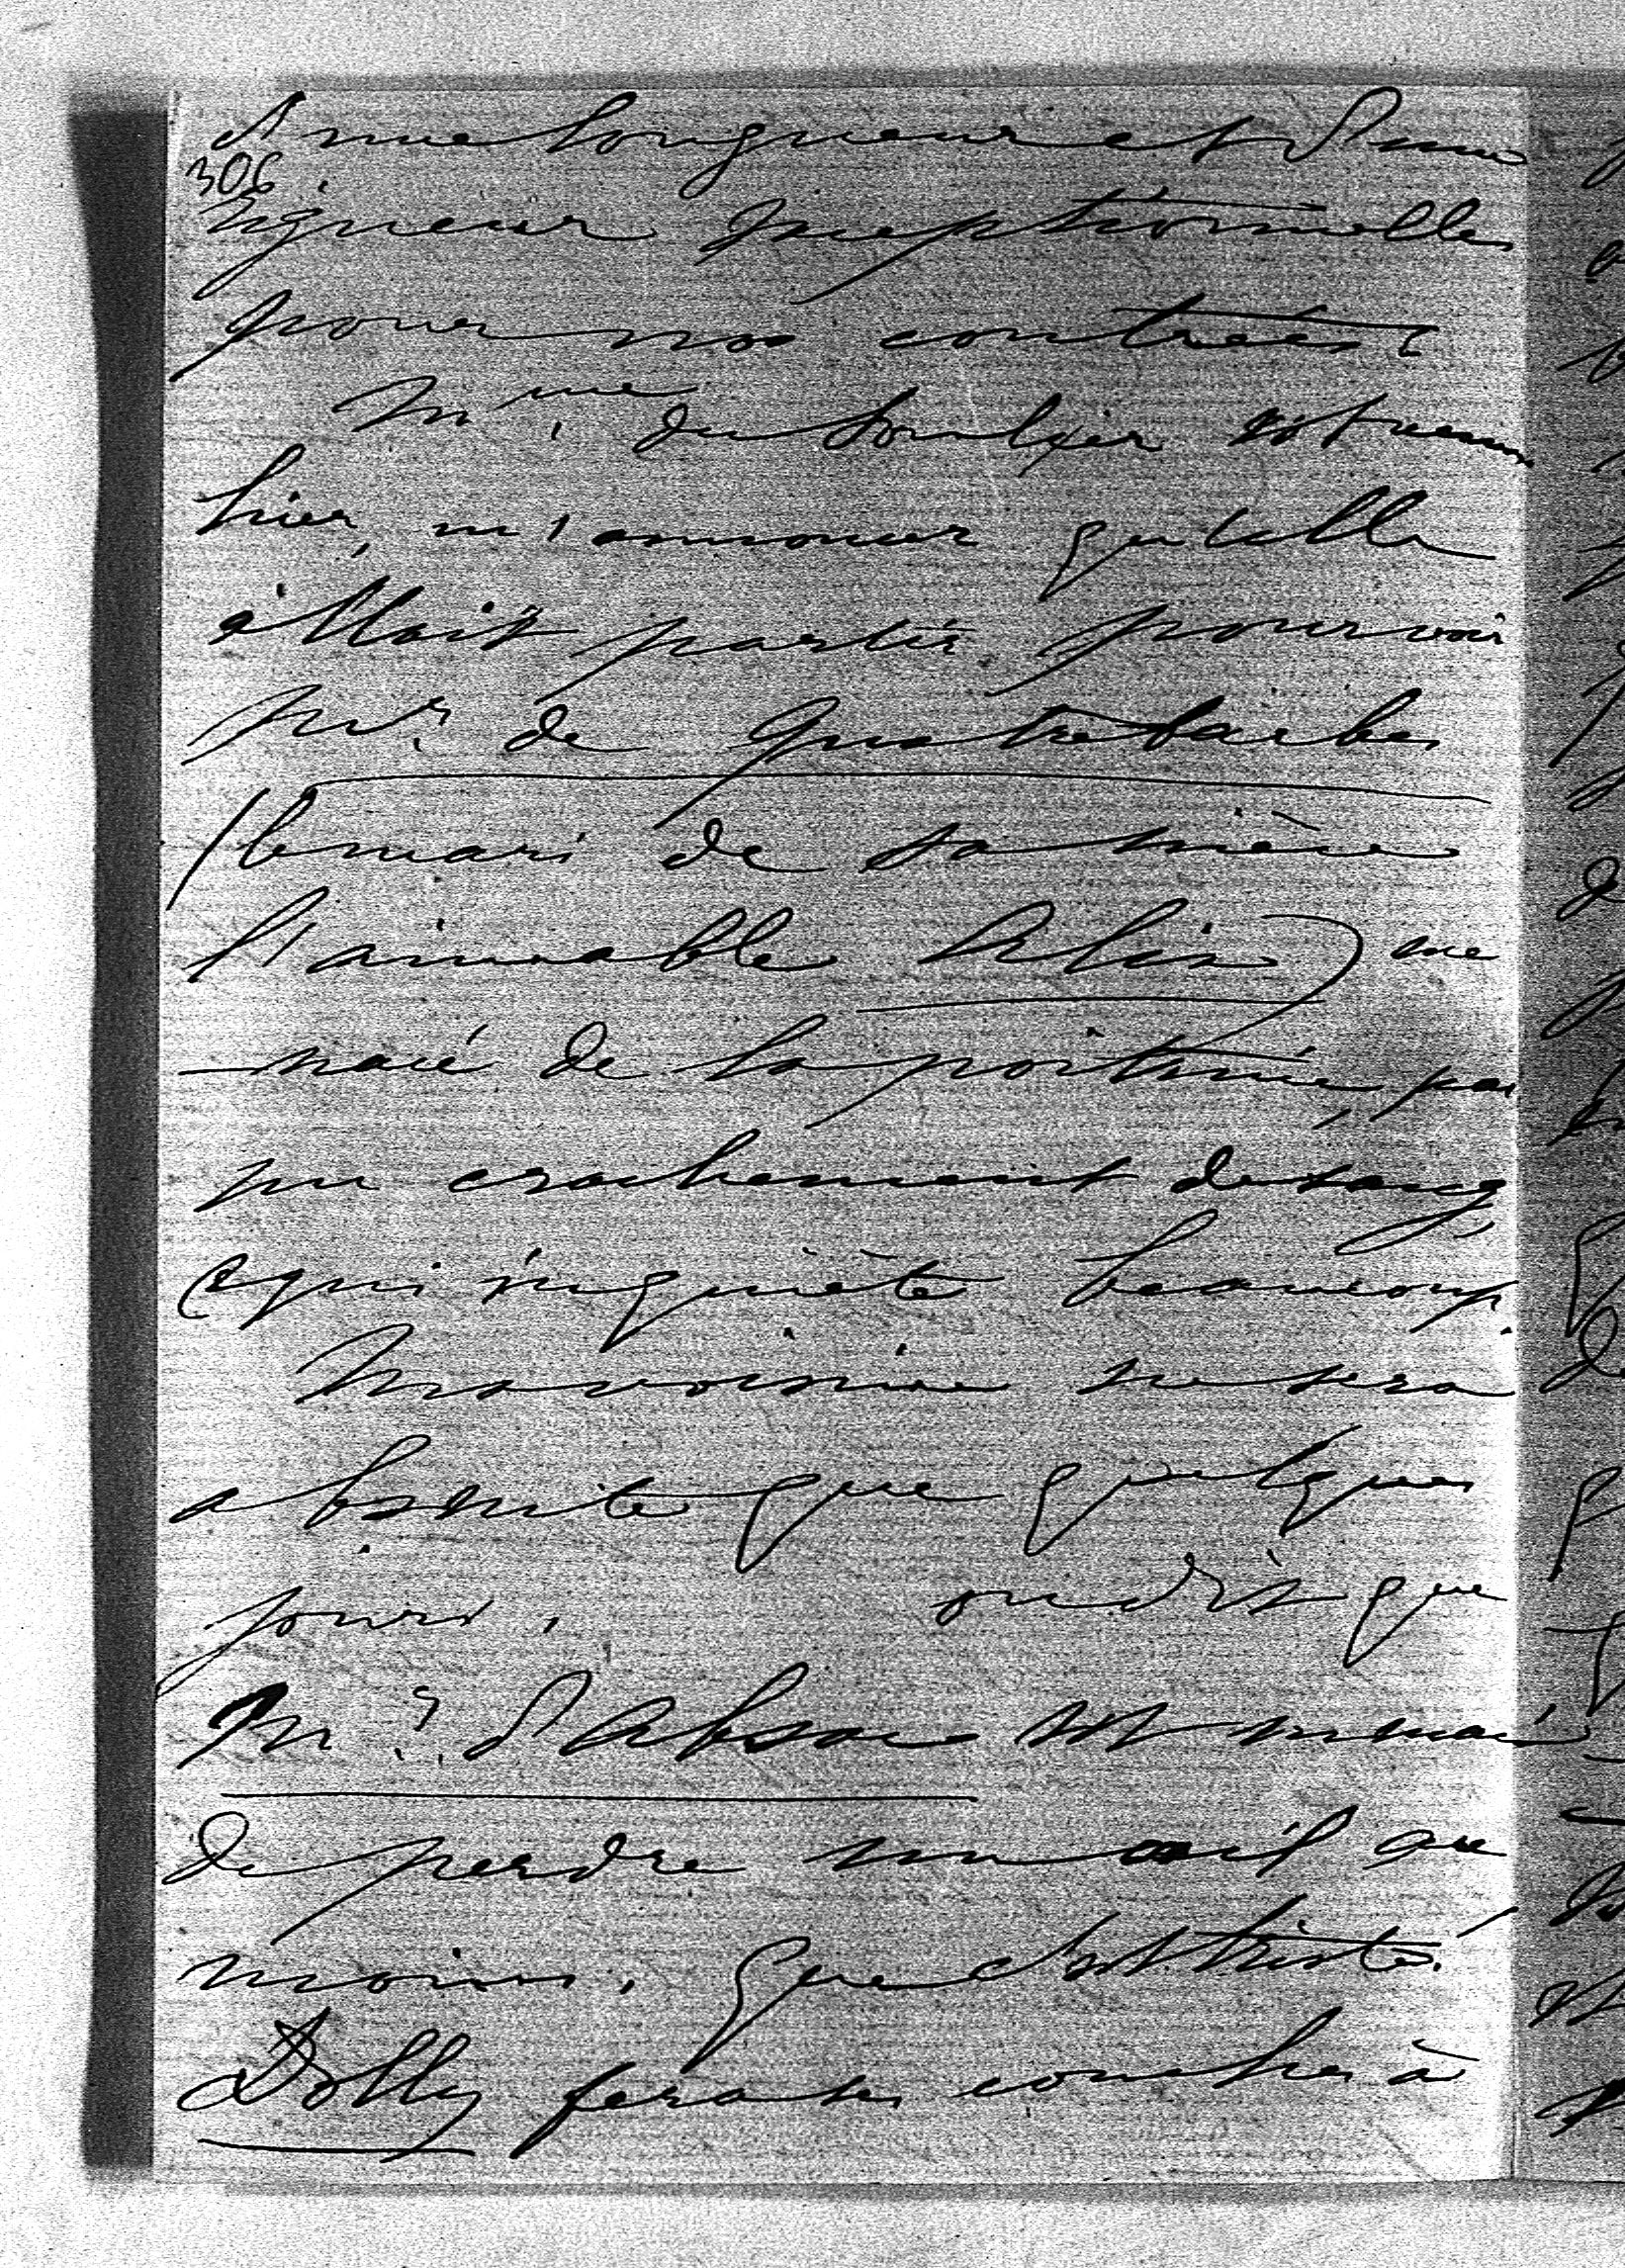 d'une longueur et d'une
306
rigueur exceptionnelles
pour nos contrées.
Mme du Soulier est venue
hier, m'annoncer qu'elle
allait partir pour voir
Mr de Quatrebarbes
(le mari de sa nièce
l'aimable Alix) me
nacé de la poitrine, par
un crachement de sang
ce qui inquiète beaucoup.
Ma voisine ne sera
absente que quelques
jours. on dit que
Mr d'Absac est menacé
de perdre un œil au
moins. que c'est triste!
Dolly fera ses couches à